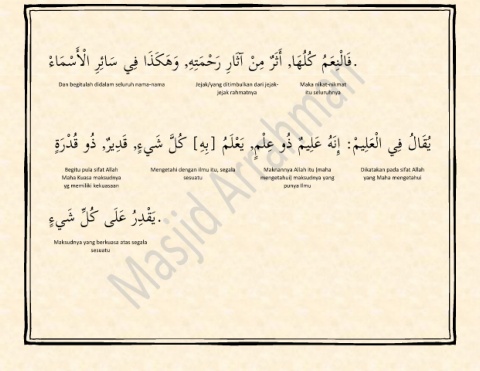 فَالْنِعَمُ كُلُهَا, أَثَرٌ مِنْ آثَارِ رَحْمَتِهِ, وَهَكَذَا فِي سَائِرِ الْأَسْمَاءْ.
Maka nikat-nikmat itu seluruhnya
Jejak/yang ditimbulkan dari jejak-jejak rahmatnya
Dan begitulah didalam seluruh nama-nama
يُقَالُ فِي الْعَلِيمْ: إِنَّهُ عَلِيمٌ ذُو عِلْمٍ, يَعْلَمُ [بِهِ] كُلَّ شَيءٍ, قَدِيرٌ, ذُو قُدْرَةٍ
Dikatakan pada sifat Allah yang Maha mengetahui
Maknannya Allah itu (maha mengetahui) maksudnya yang punya Ilmu
Mengetahi dengan ilmu itu, segala sesuatu
Begitu pula sifat Allah Maha Kuasa maksudnya yg memiliki kekuasaan
يَقْدِرُ عَلَى كُلِّ شَيءٍ.
Maksudnya yang berkuasa atas segala sesuatu
Masjid Arrahman